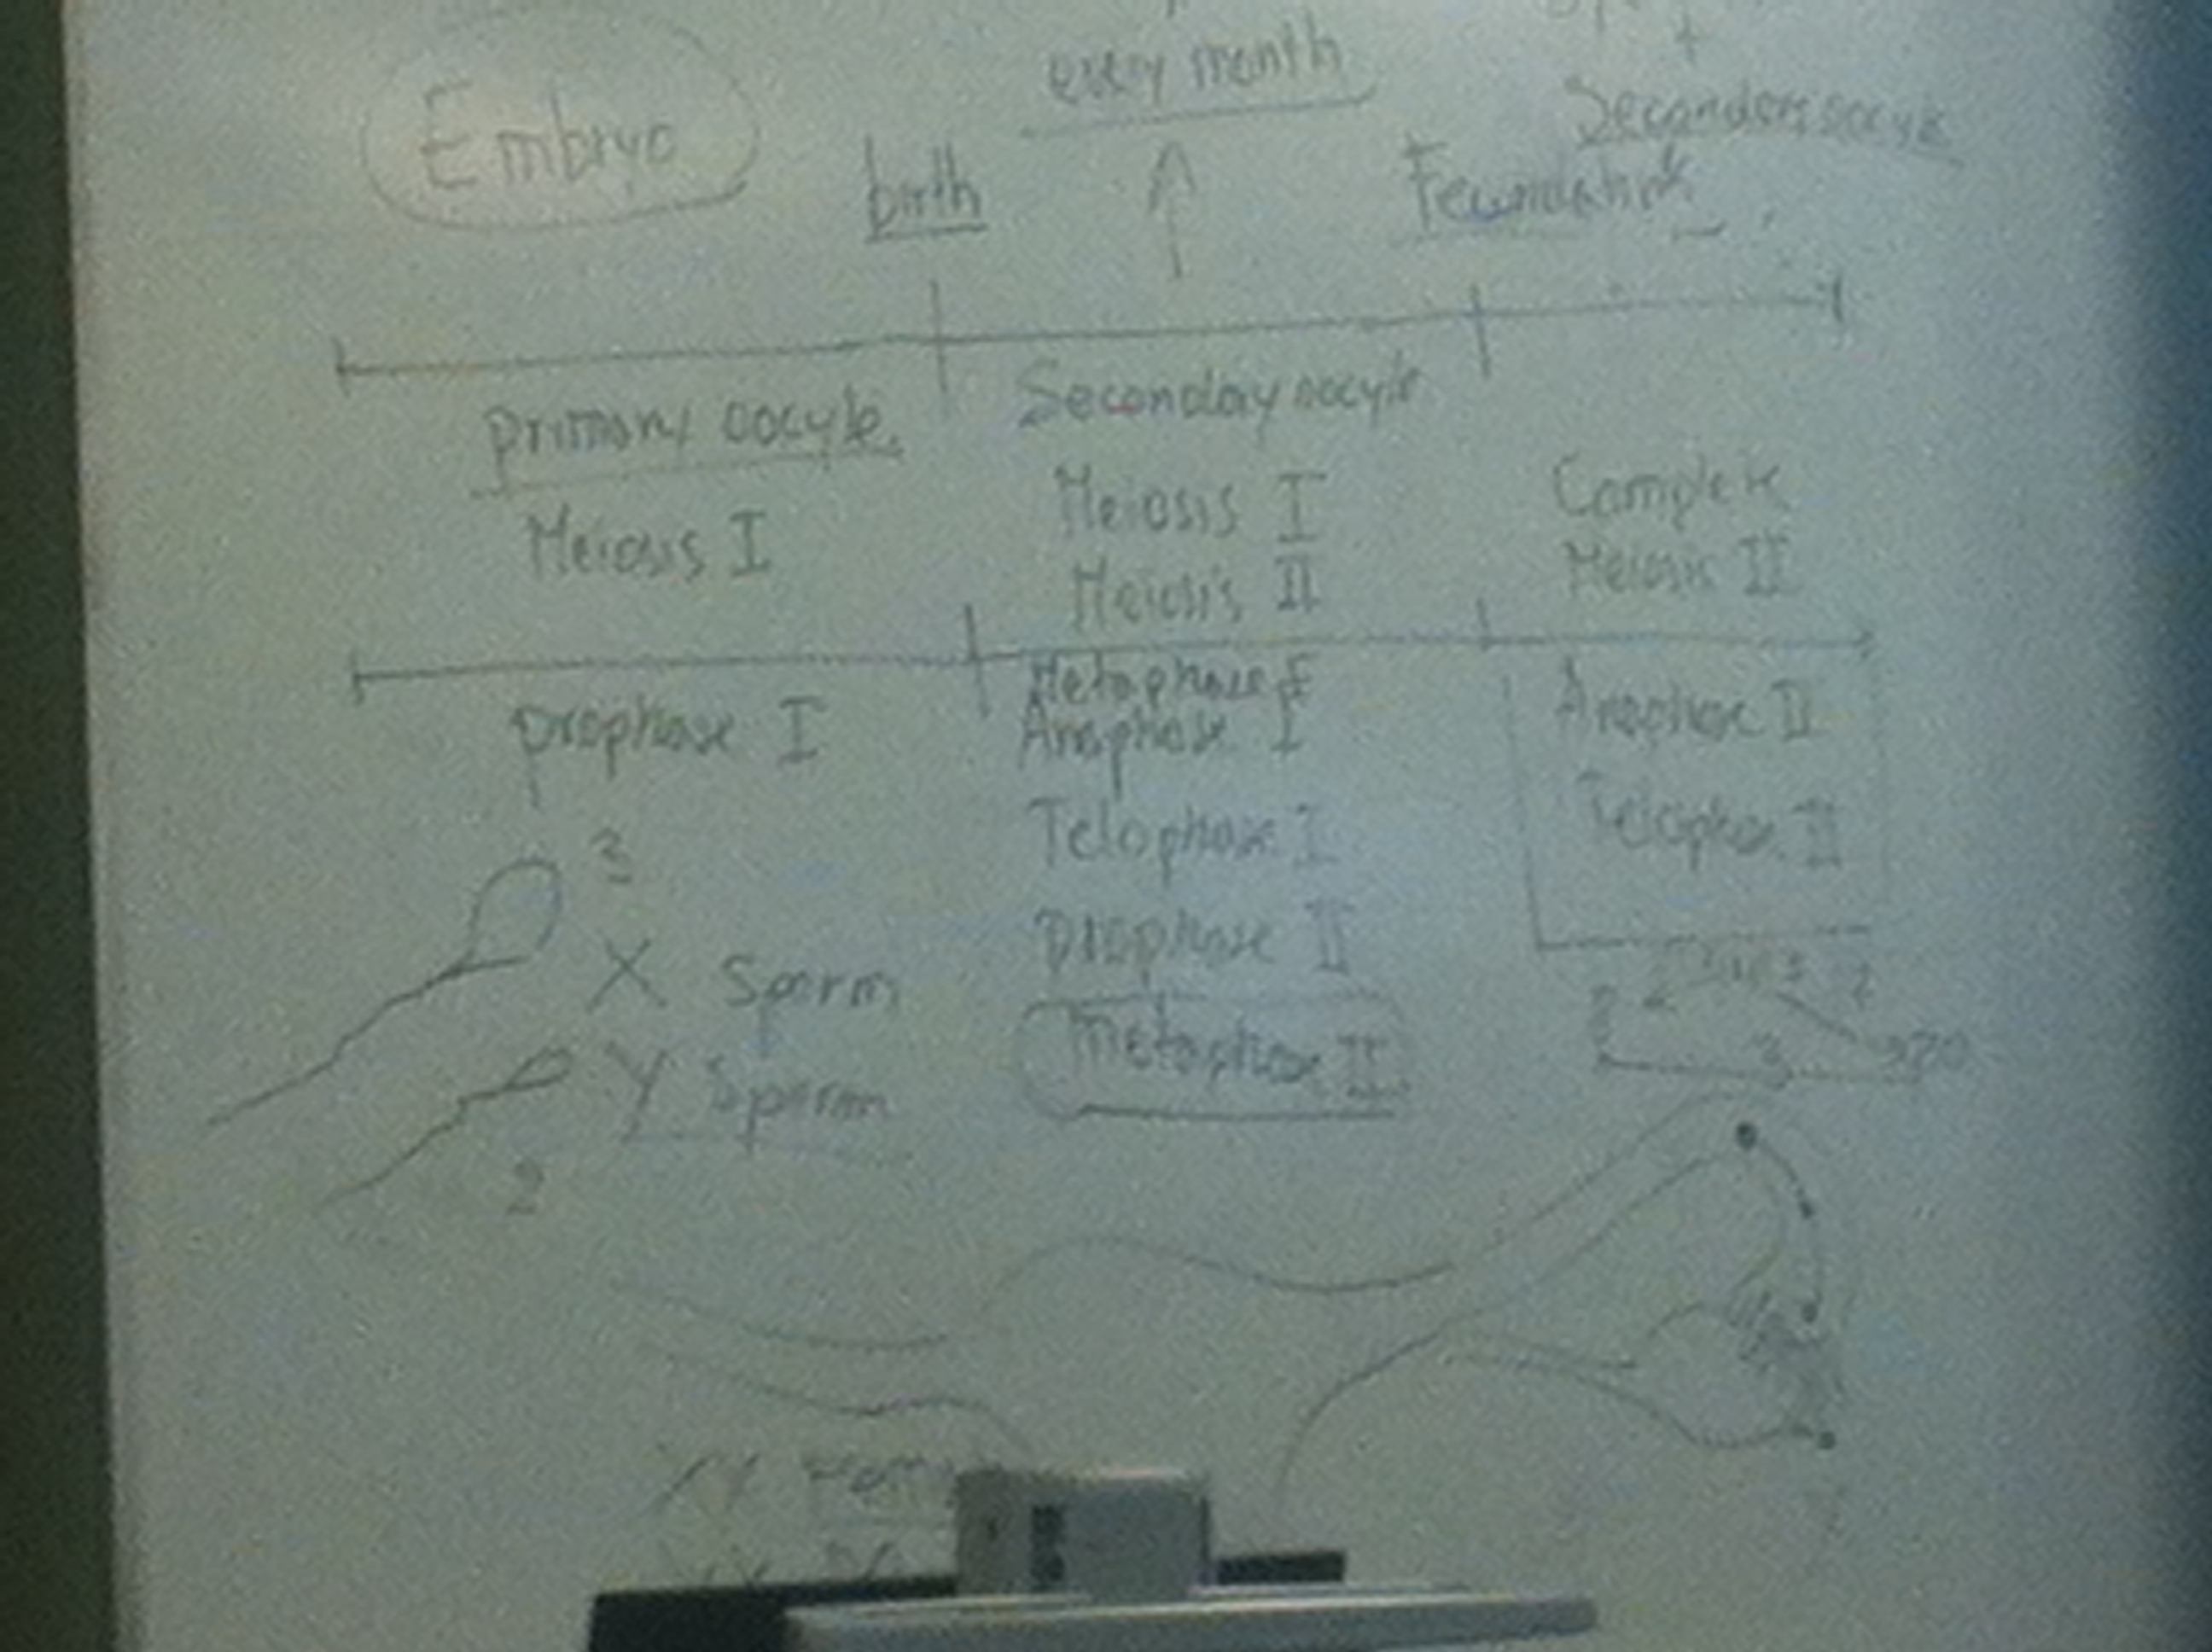 every month
+
Embryo
birth
Secondary oocyte
primary oocyte.
Secondary oocyte
Meiosis I
Meiosis I
Meiosis II
Complete
Meiosis II
prophase I
Metaphase I
Anaphase I
Anaphase II
Telophase I
Telophase II
3
prophase II
X Sperm
Metaphase II
Y Sperm
2
3